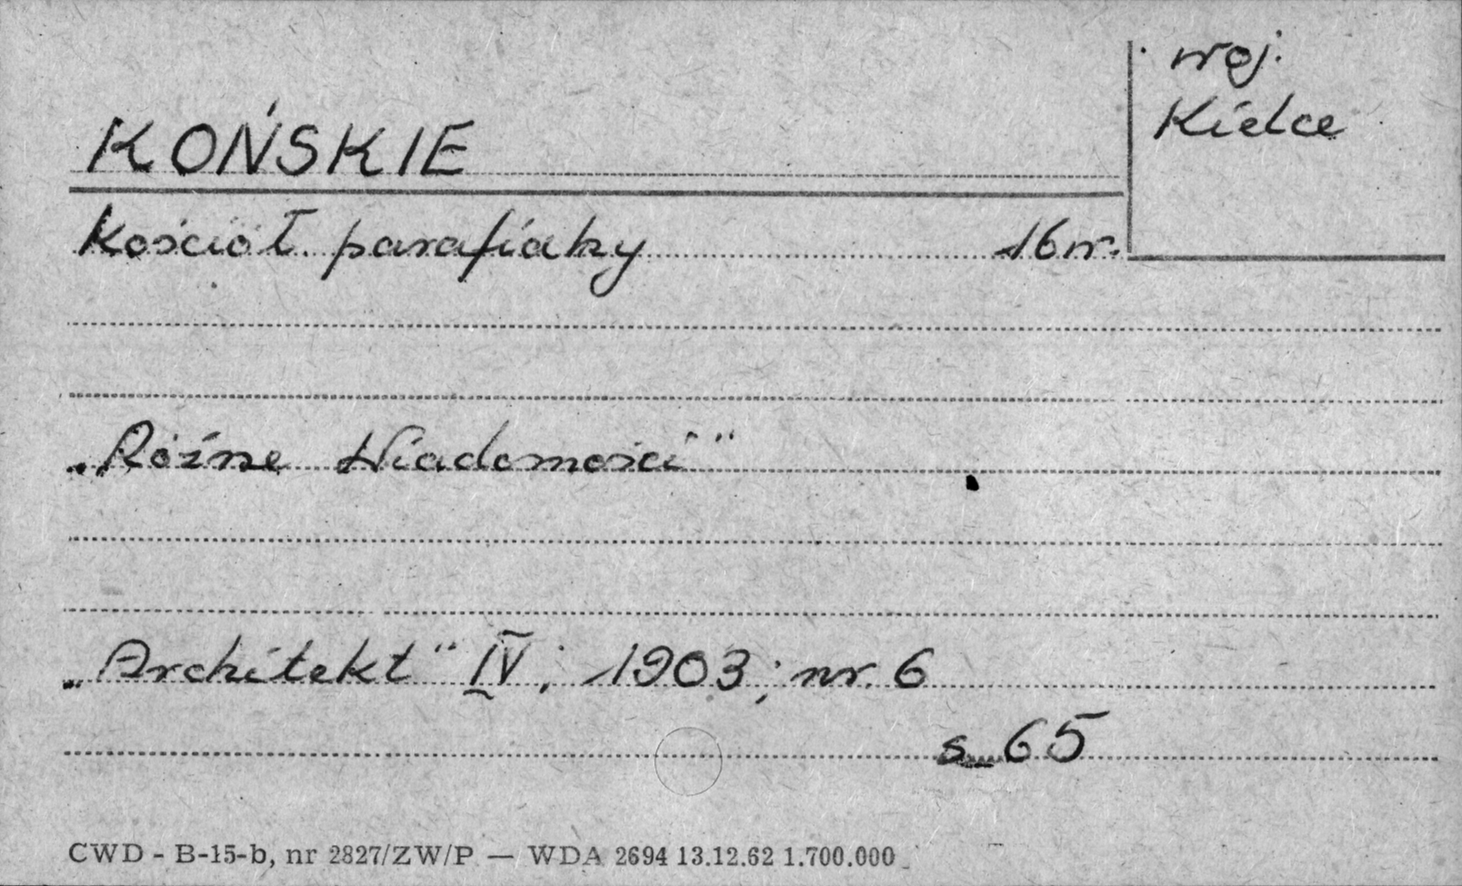 woj.
Kielce
KOŃSKIE
Kościół parafialny 16 w.
„Różne Wiadomości"
„Architekt" IV; 1903; nr. 6
s. 65
CWD - B-15-b, nr 2827/ZW/P — WDA 2694 13.12.62 1.700.000